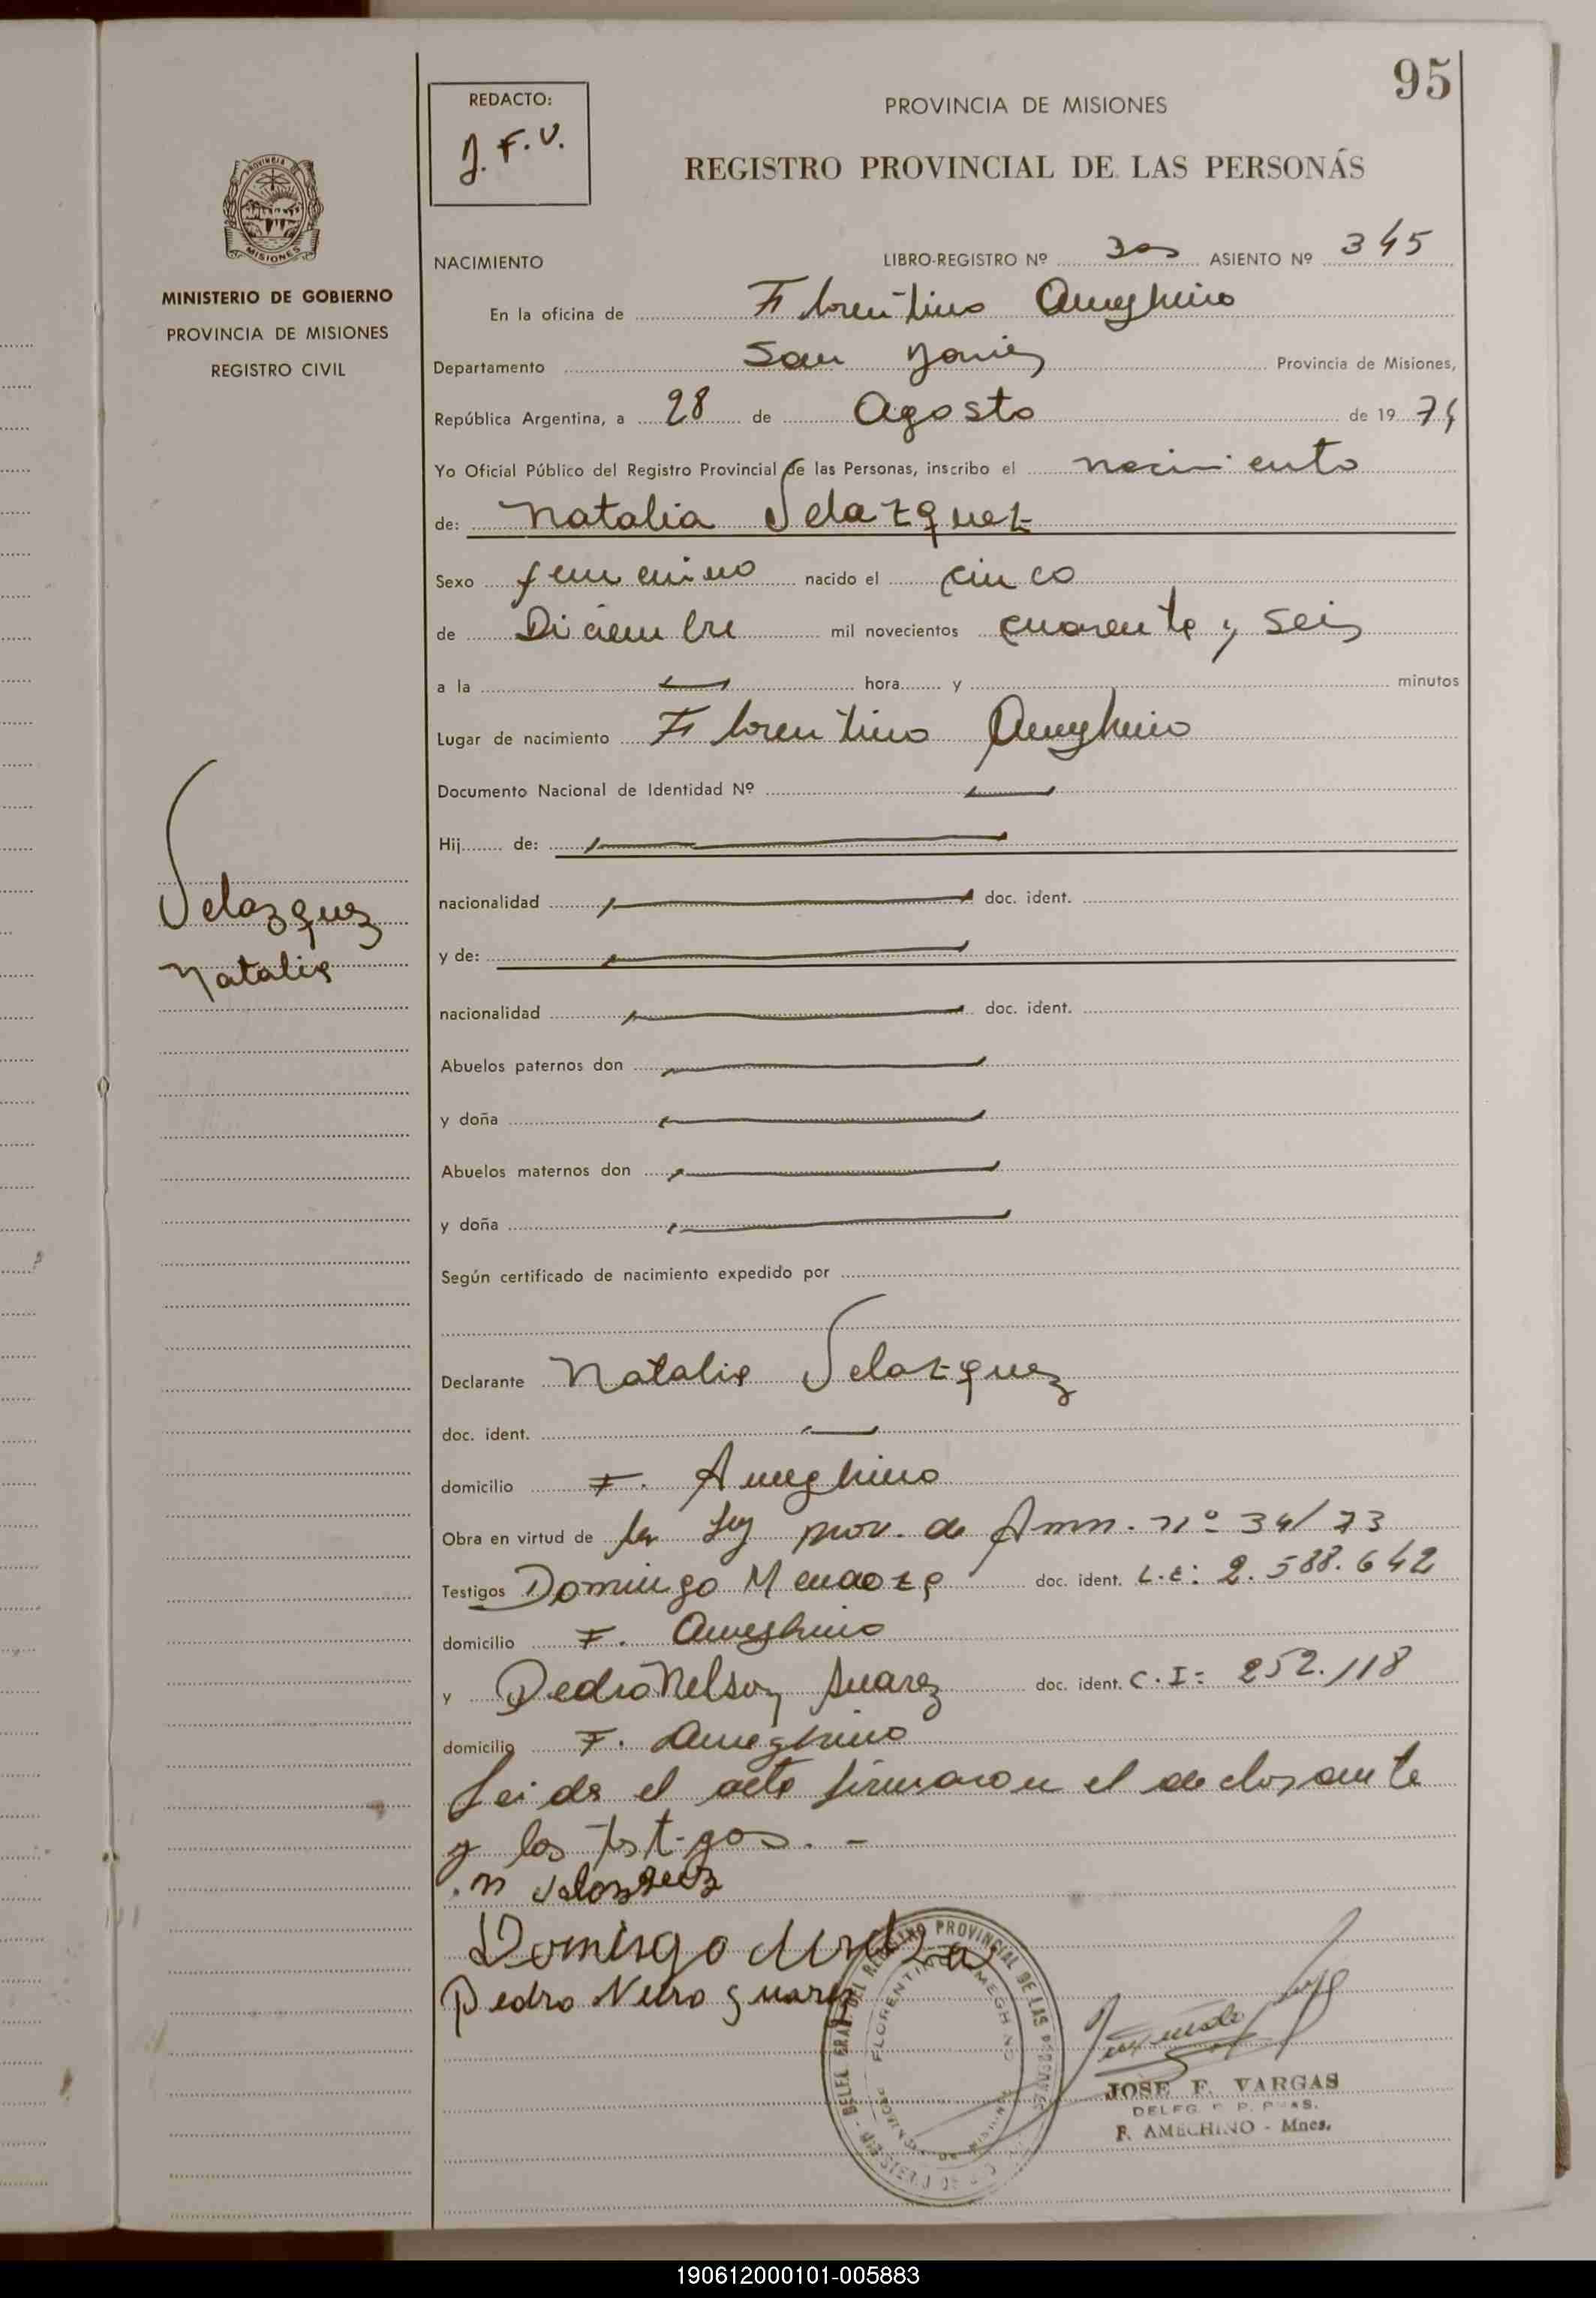 95
REDACTO:
J. F. V.
PROVINCIA DE MISIONES
REGISTRO PROVINCIAL DE LAS PERSONAS
MINISTERIO DE GOBIERNO
PROVINCIA DE MISIONES
REGISTRO CIVIL
NACIMIENTO LIBRO-REGISTRO Nº ASIENTO Nº 345
En la oficina de Florentino Ameghino
Departamento San Javier Provincia de Misiones,
República Argentina, a 28 de Agosto de 19 74
Yo Oficial Público del Registro Provincial de las Personas, inscribo el nacimiento
de: Natalia Velazquez
Sexo femenino nacido el cinco
de Diciembre mil novecientos cuarenta y seis
a la — hora y minutos
Lugar de nacimiento Florentino Ameghino
Documento Nacional de Identidad Nº —
Hij de: —
nacionalidad — doc. ident.
y de: —
nacionalidad — doc. ident.
Abuelos paternos don —
y doña —
Abuelos maternos don —
y doña —
Según certificado de nacimiento expedido por
Velazquez
Natalia
Declarante Natalia Velazquez
doc. ident. —
domicilio F. Ameghino
Obra en virtud de la Ley prov. de Amn. nº 34/73
Testigos Domingo Mendoza doc. ident. L.E: 2.588.642
domicilio F. Ameghino
y Pedro Nelson Suarez doc. ident. C.I: 252.118
domicilio F. Ameghino
Leida el acta firmaron el declarante
y los testigos. —
N Velazquez
Domingo
Pedro Suarez
DEL REGISTRO PROVINCIAL DE LAS PERSONAS
FLORENTINO AMEGHINO
JOSE F. VARGAS
F. AMEGHINO - Mnes.
190612000101-005883